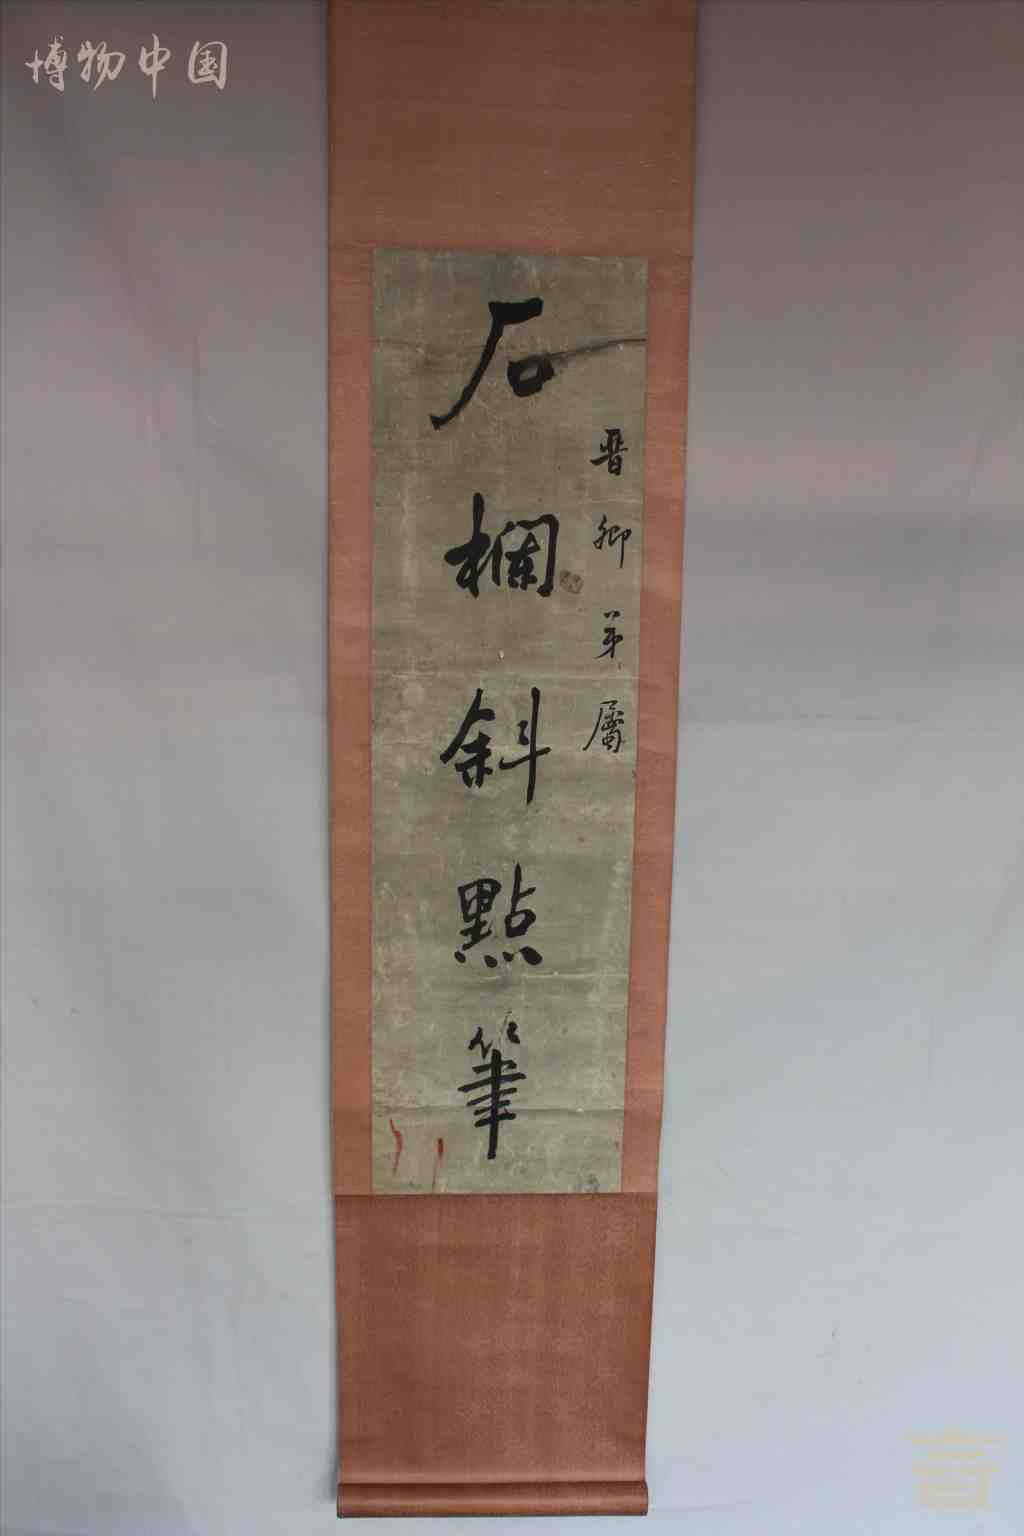 博物中国
晋卿弟屬
石欄斜點筆
晋